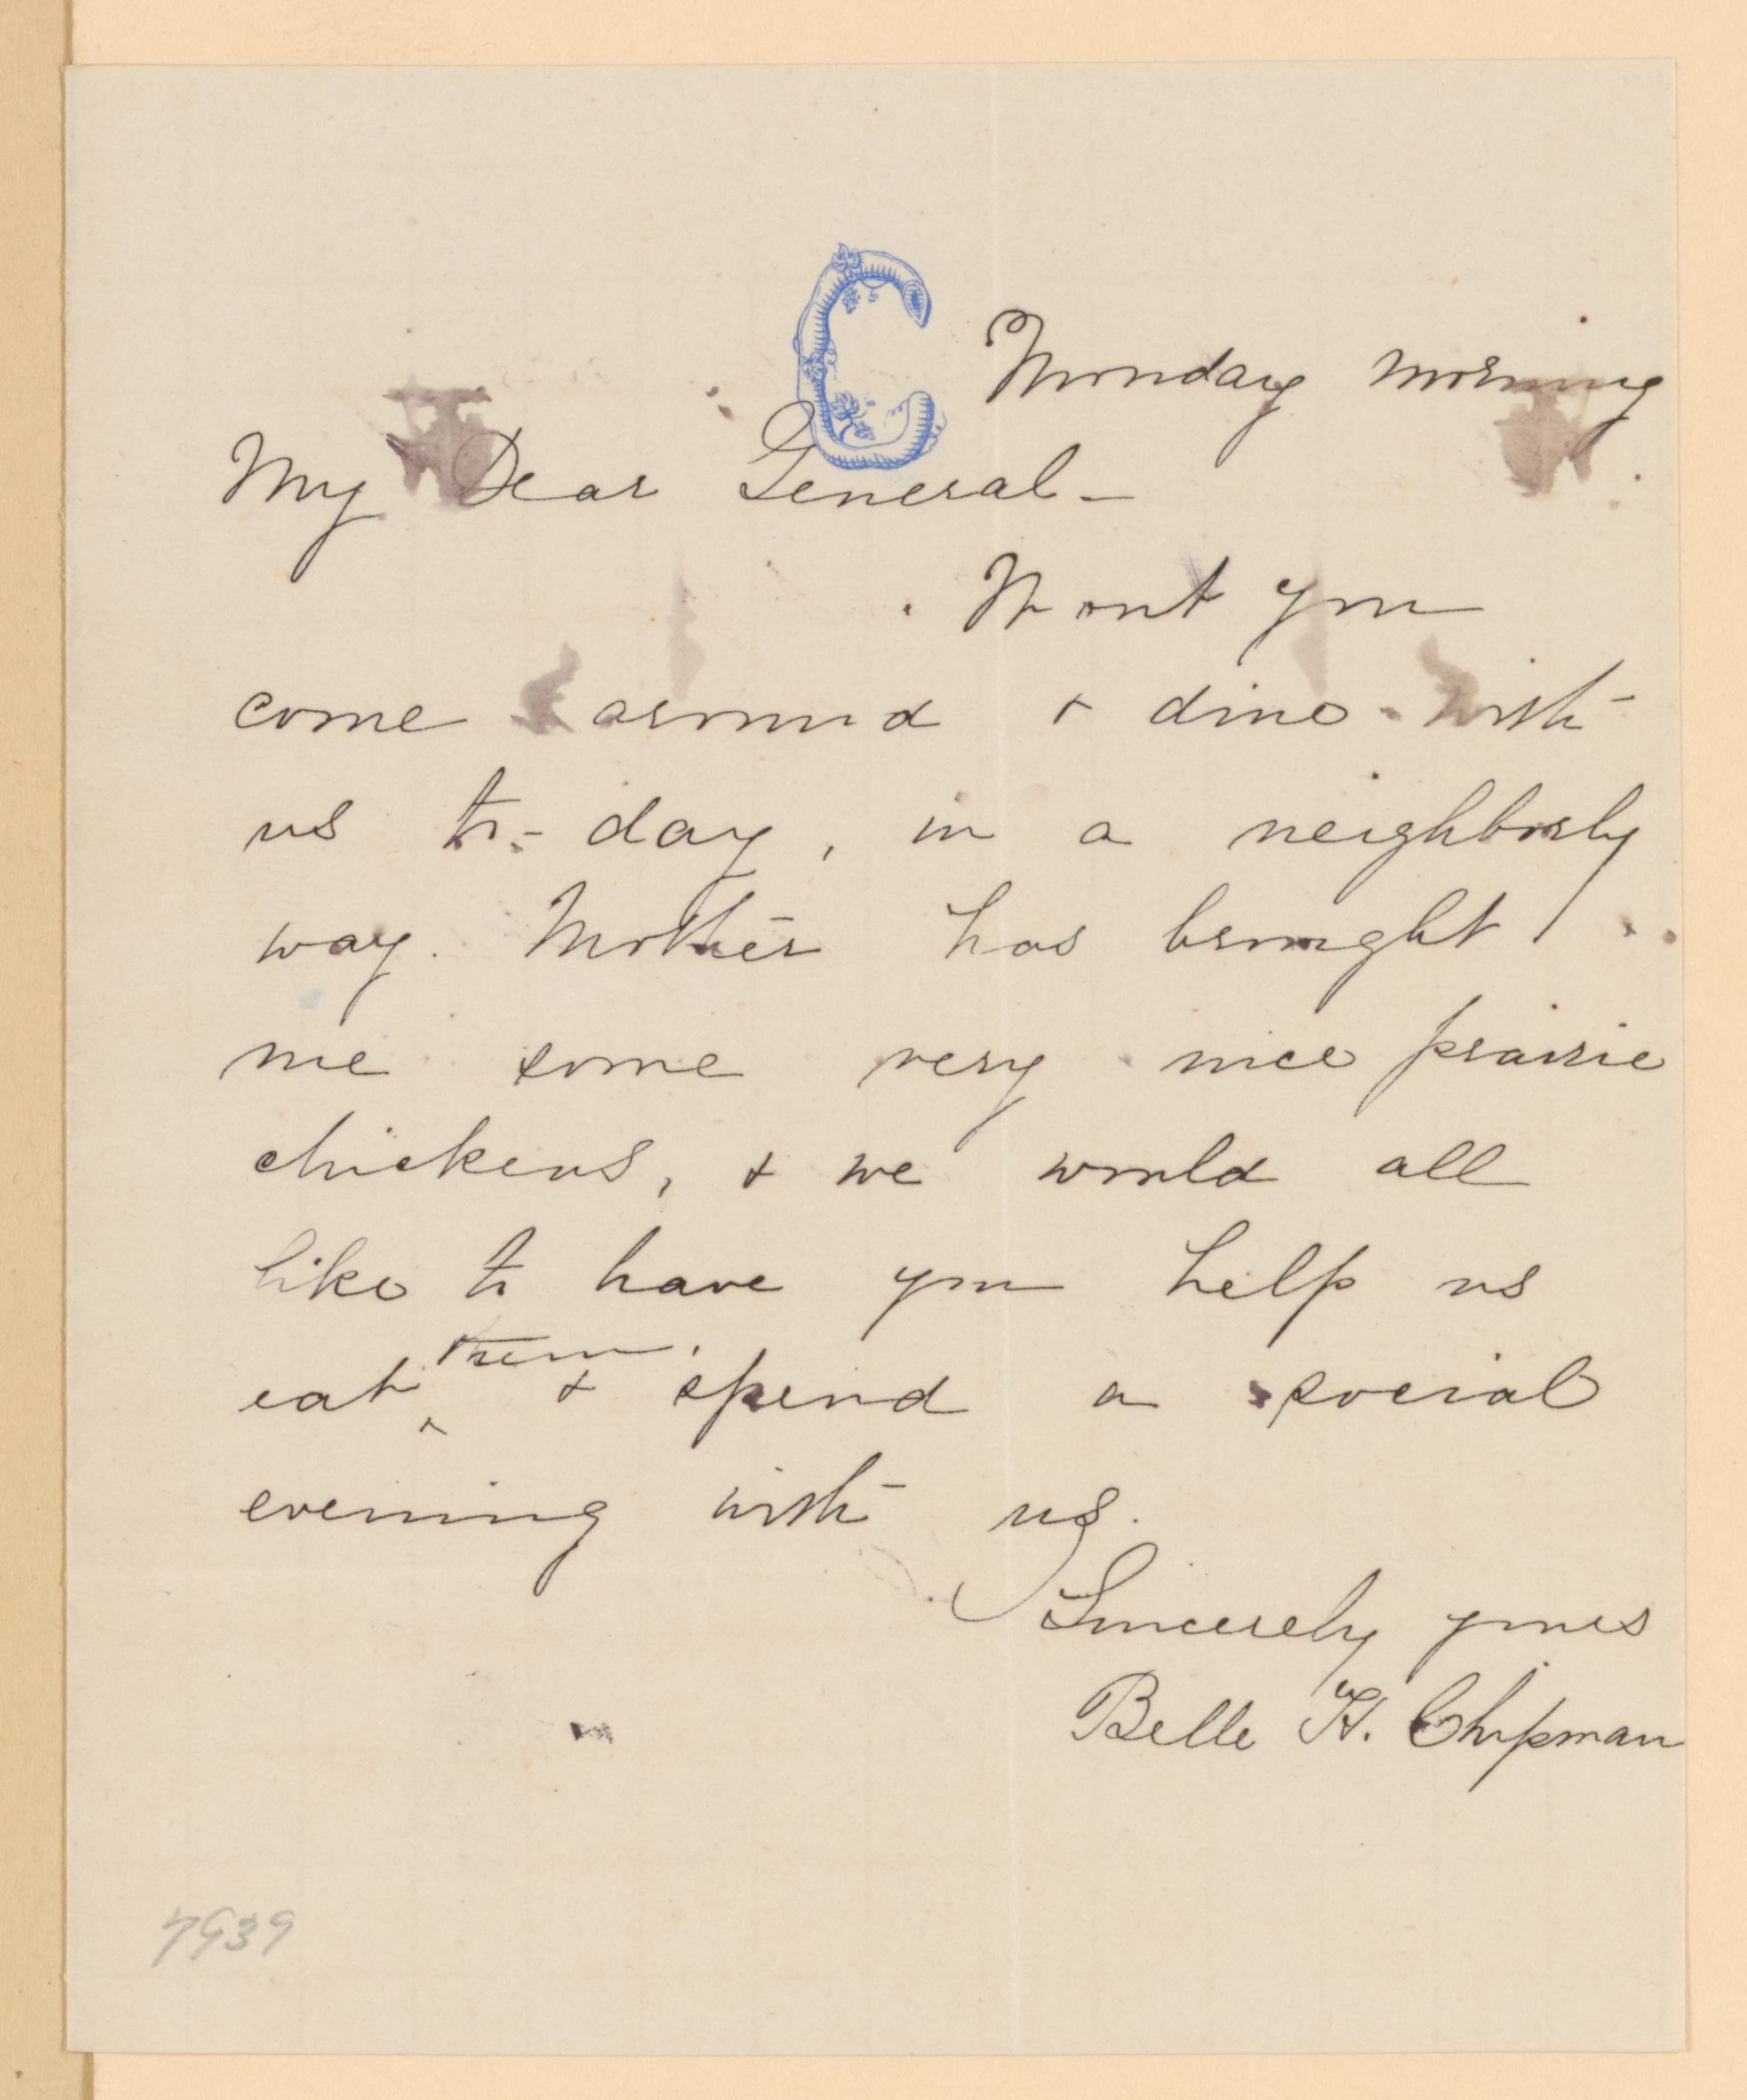 C
Monday morning
My Dear General -
Wont you
come around & dine with
us to-day, in a neighborly
way. Mother has brought
me some very nice prairie
chickens, & we would all
like to have you help us
eat ^them, & spend a social
evening with us.
Sincerely yours
Belle H. Chipman
7939